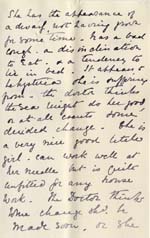 She has the appearance of
a dwarf, not having grown
for some time. Has a bad
cough - a disinclination
to eat - & a tendency to
lie in bed. It appears
she is suffering
from - the doctor thinks
the Sea might do her good
or at all events some
decided change. She is
a very nice good little
girl - can work well at
her needle but is quite
unfitted for any house
work. The Doctor thinks
some change shd. be
made soon, or she